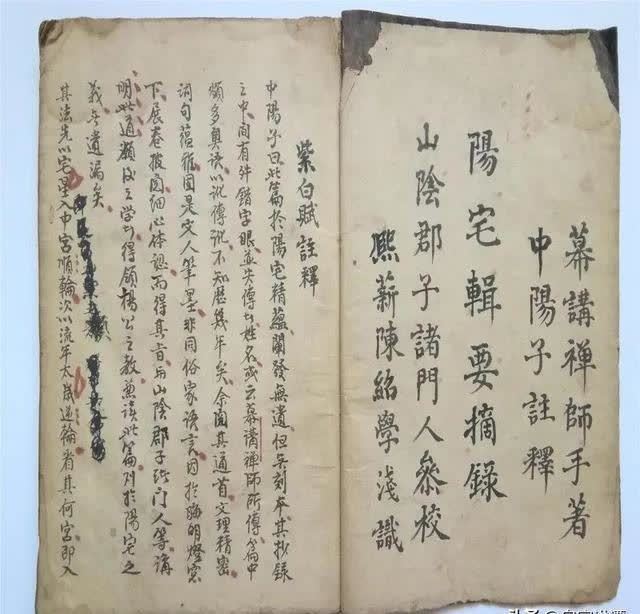 幕講禪師手著
中陽子註釋
陽宅輯要摘錄
山陰郡子諸門人叅校
熙薪陳紹學淺識
紫白賦註釋
中陽子曰此篇於陽宅精蘊闡發無遺但無刻本其抄錄
之中间有舛錯字眼並失傳者姓名或云幕講禪師所傳篇中
頗多奧語以訛傳訛不知歷幾年矣余閱其通首文理精密
詞句蘊雅固是文人筆墨非同俗家語言因於晦明燈窓
下展卷披圖細心体認而得其旨与山陰郡子諸門人等講
明此道願後之学者得領楊公之教兼讀此篇則於陽宅之
義無遺漏矣
其法先以宅星入中宮順輪次以流年太歲逆輪看其何宮即入